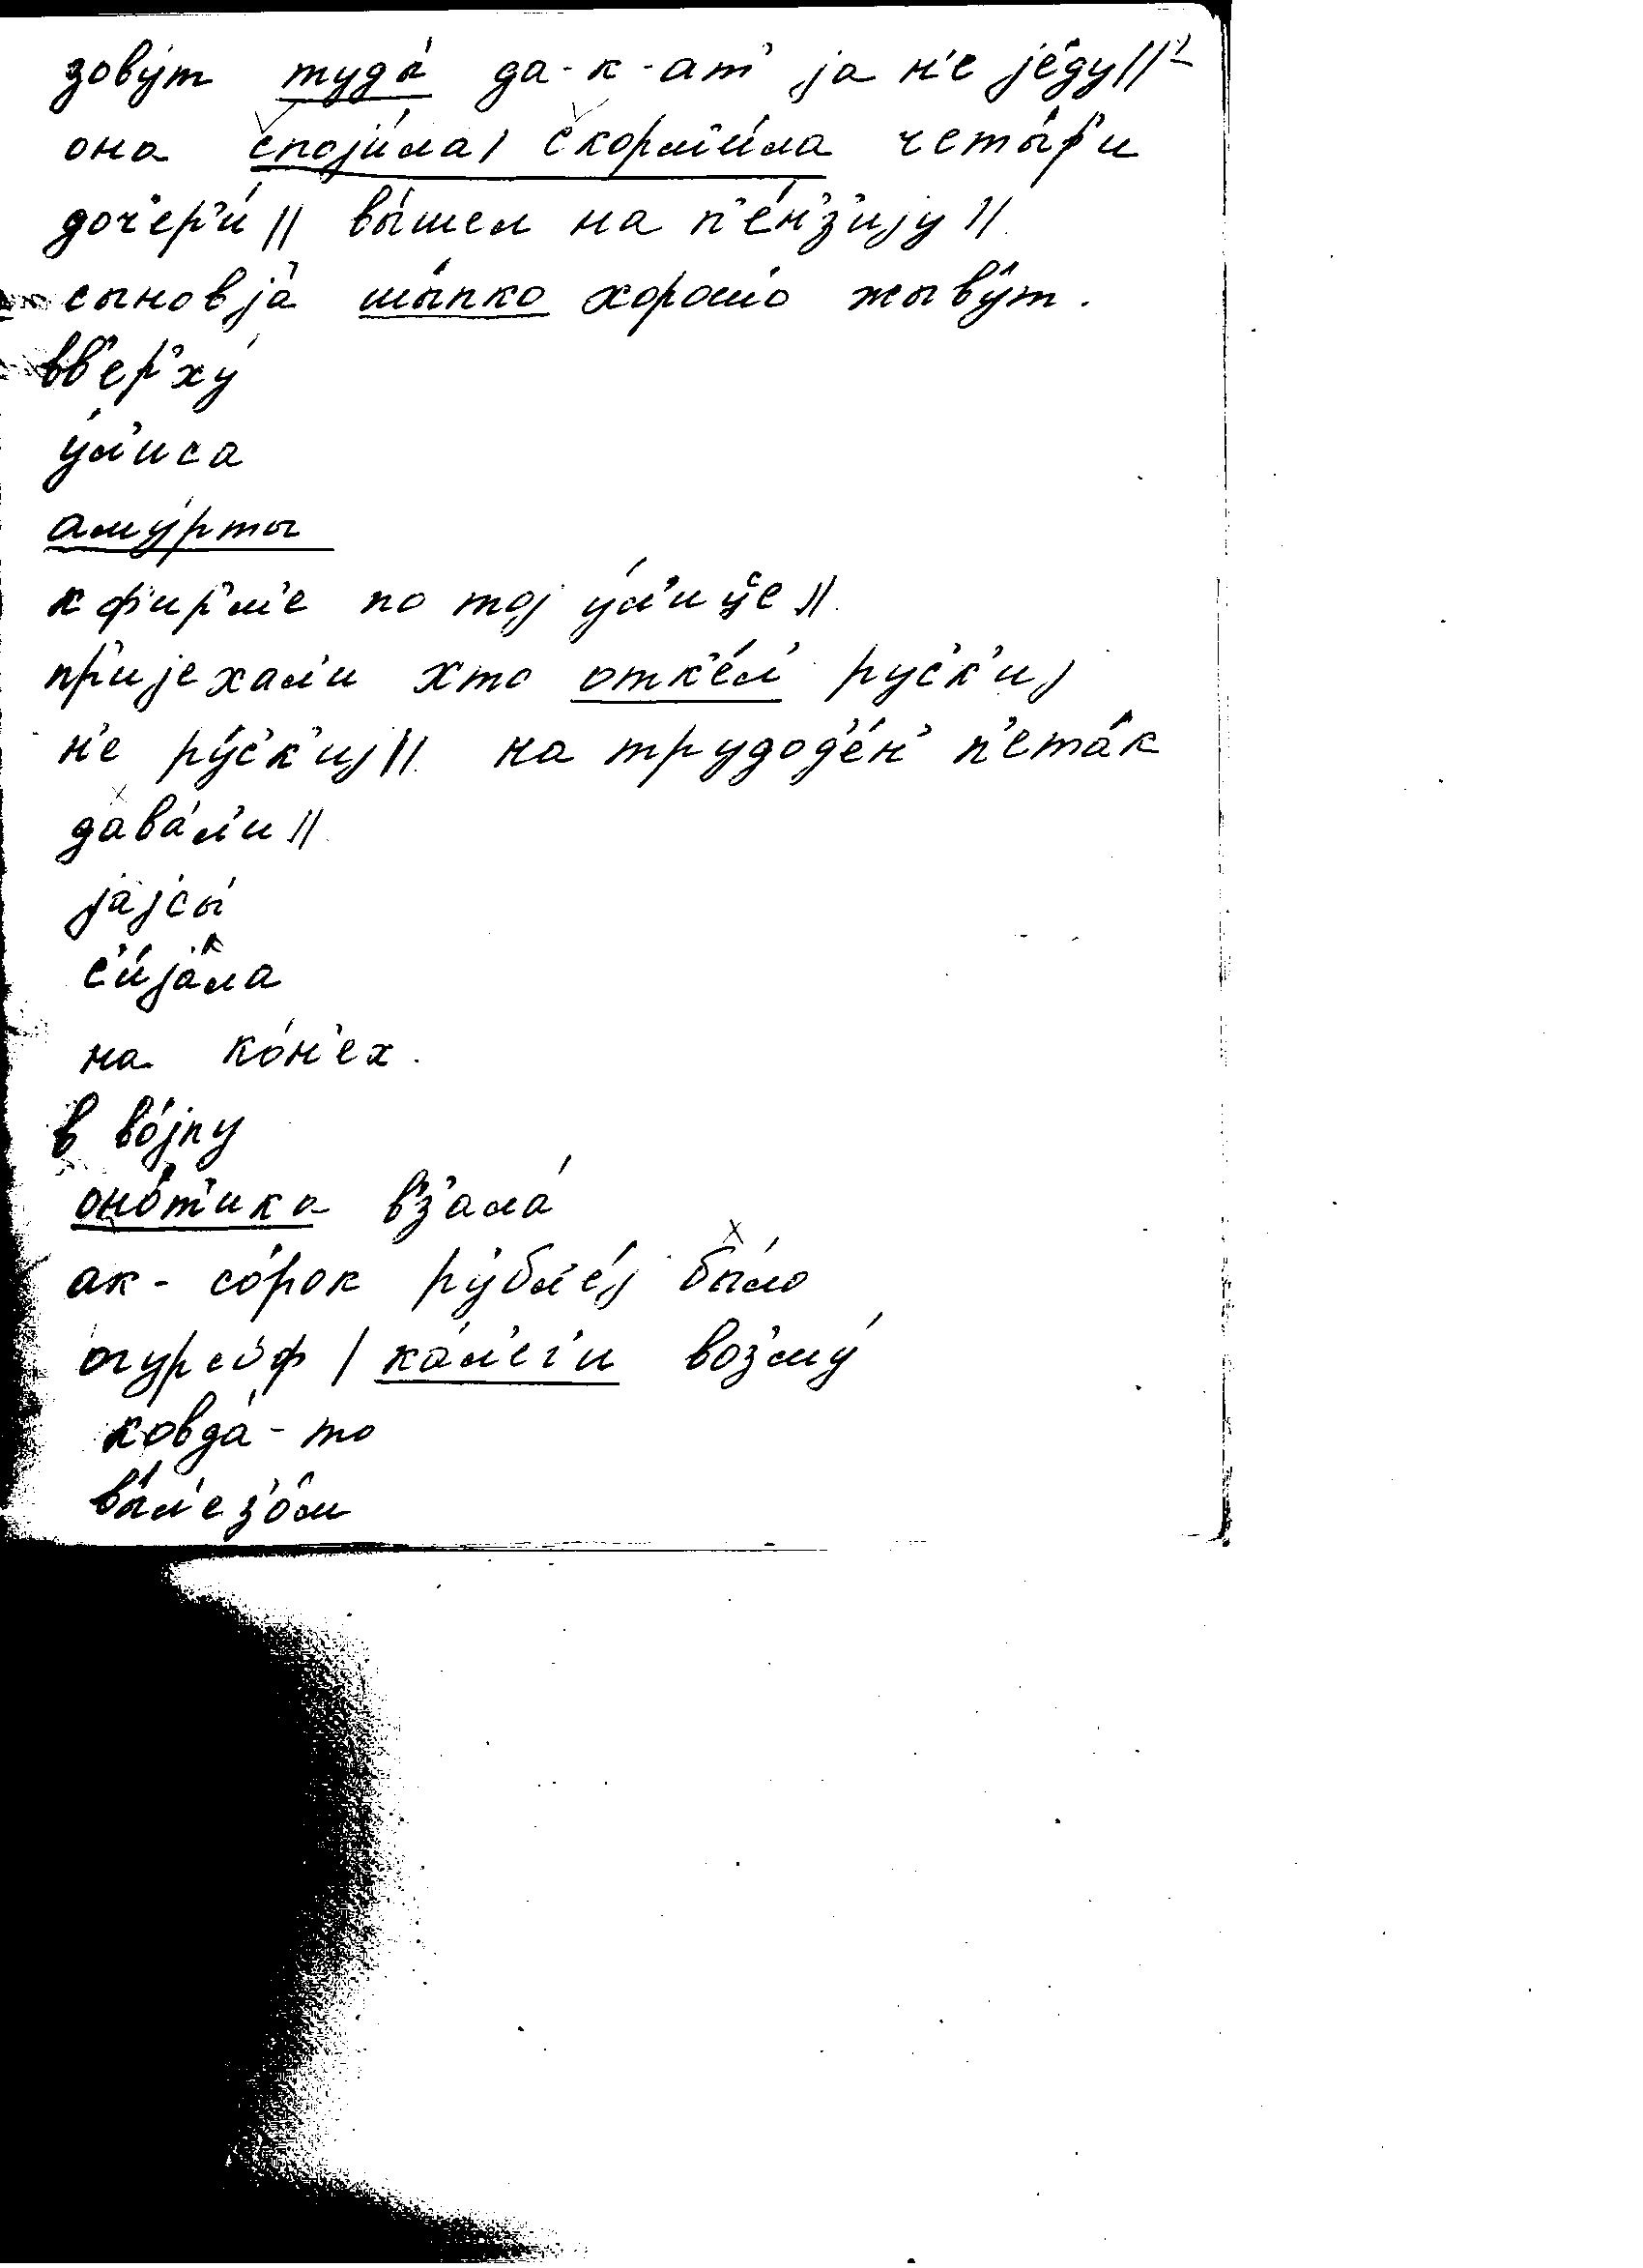 зову́т туда́ да-к-ат' ја н'е је́ду ||
она споји́ла, скорм'и́ла четы́р'и
доч'ер'и́ || вы́шел на п'е́н'з'ију ||
сыновја́ шы́пко хорошо́ жыву́т.
вв'ер'ху́
у́л'иса
аму́рты
к фир'м'е по тој у́л'ице ||
пр'ијехал'и хто отк'е́л' рус'к'иј
н'е ру́с'к'иј || на трудод'е́н' п'ета́к
дава́л'и ||
јајсы́
с'и́јала
на ко́н'ех.
в во́јну
оно́т'ика в'з'ала́
ак- со́рок рубл'е́ј бы́ло
огурсо́ф / ка́л'ег'и воз'му́
ковда́-то
вы́л'ез'ом